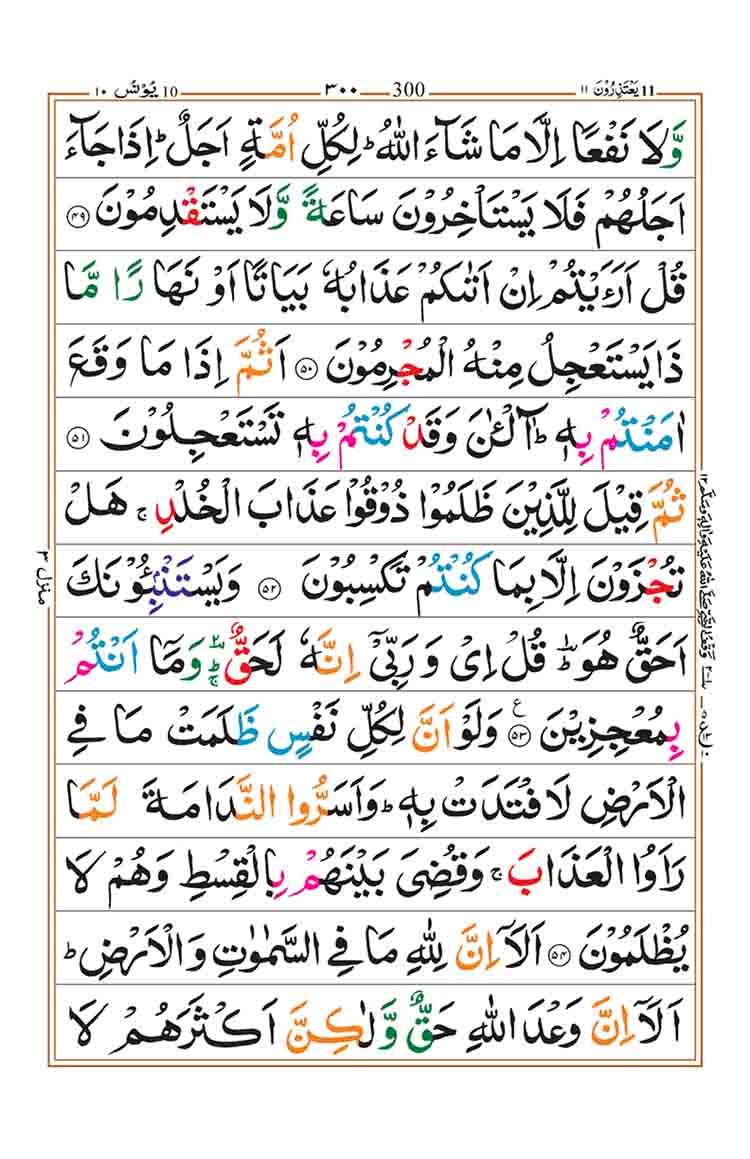 ۱۰ يُوْنُس 10 ۳۰۰ 300 ۱۱ يَعْتَذِرُوْنَ 11
وَّلَا نَفْعًا اِلَّا مَا شَآءَ اللّٰهُ ؕ لِكُلِّ اُمَّةٍ اَجَلٌ ؕ اِذَا جَآءَ
اَجَلُهُمْ فَلَا يَسْتَاْخِرُوْنَ سَاعَةً وَّلَا يَسْتَقْدِمُوْنَ ﴿۴۹﴾
قُلْ اَرَءَيْتُمْ اِنْ اَتٰىكُمْ عَذَابُهٗ بَيَاتًا اَوْ نَهَا رًا مَّا
ذَا يَسْتَعْجِلُ مِنْهُ الْمُجْرِمُوْنَ ﴿۵۰﴾ اَثُمَّ اِذَا مَا وَقَعَ
اٰمَنْتُمْ بِهٖ ؕ آٰلْـٰٔنَ وَقَدْ كُنْتُمْ بِهٖ تَسْتَعْجِلُوْنَ ﴿۵۱﴾
ثُمَّ قِيْلَ لِلَّذِيْنَ ظَلَمُوْا ذُوْقُوْا عَذَابَ الْخُلْدِ ۚ هَلْ
تُجْزَوْنَ اِلَّا بِمَا كُنْتُمْ تَكْسِبُوْنَ ﴿۵۲﴾ وَيَسْتَنْۢبِـُٔوْنَكَ
اَحَقٌّ هُوَ ؕ قُلْ اِىْ وَرَبِّىْۤ اِنَّهٗ لَحَقٌّ ؕۚ وَمَاۤ اَنْتُمْ
بِمُعْجِزِيْنَ ﴿۵۳﴾ ع وَلَوْ اَنَّ لِكُلِّ نَفْسٍ ظَلَمَتْ مَا فِى
الْاَرْضِ لَافْتَدَتْ بِهٖ ؕ وَاَسَرُّوا النَّدَامَةَ لَمَّا
رَاَوُا الْعَذَابَ ۚ وَقُضِىَ بَيْنَهُمْ بِالْقِسْطِ وَهُمْ لَا
يُظْلَمُوْنَ ﴿۵۴﴾ اَلَاۤ اِنَّ لِلّٰهِ مَا فِى السَّمٰوٰتِ وَالْاَرْضِ ؕ
اَلَاۤ اِنَّ وَعْدَ اللّٰهِ حَقٌّ وَّلٰكِنَّ اَكْثَرَهُمْ لَا
منزل ۳